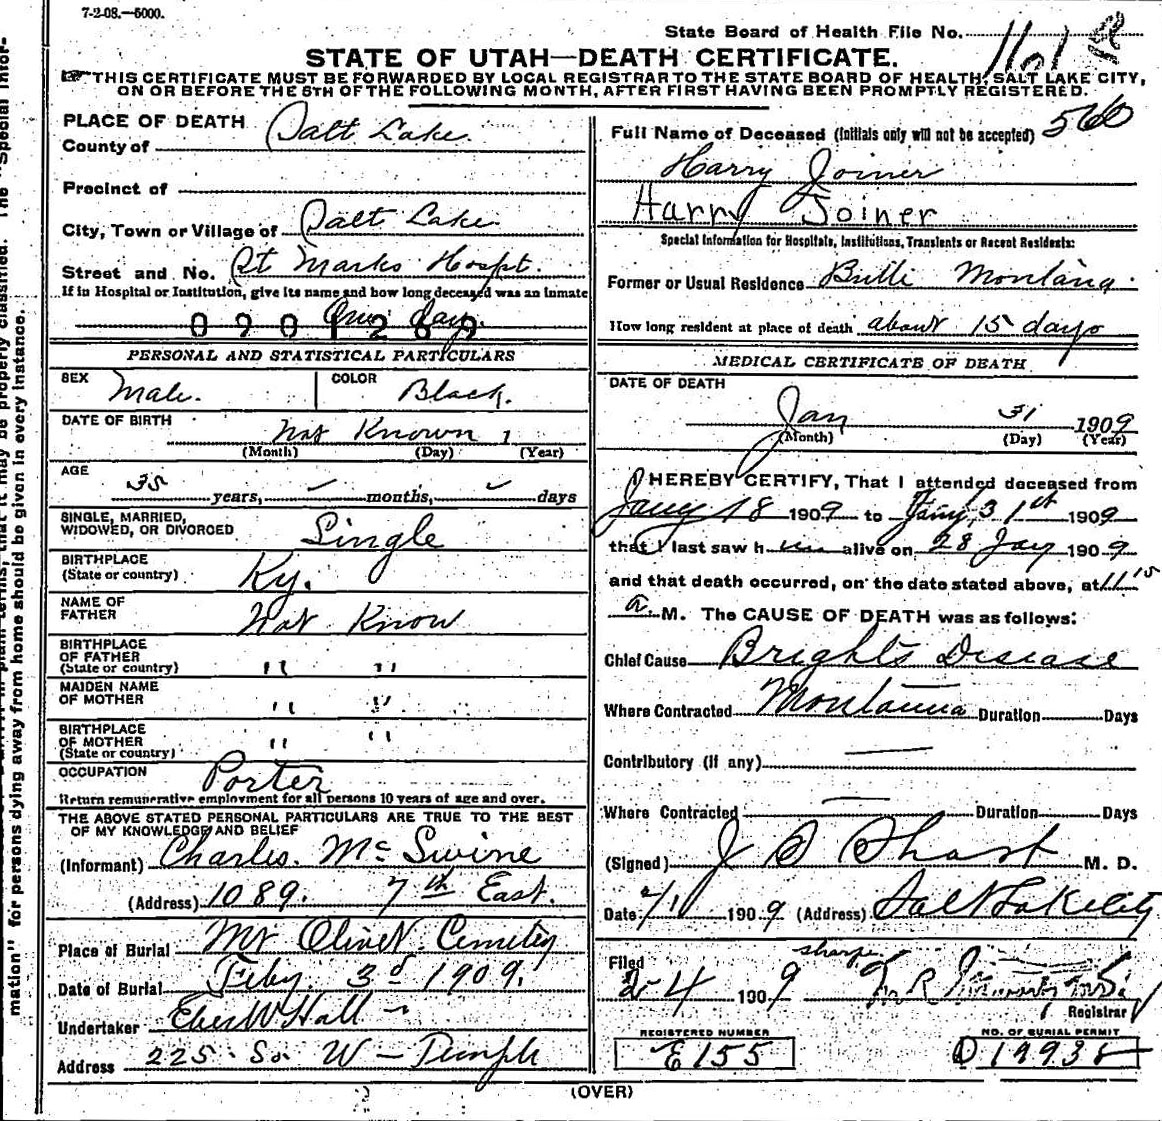 7-2-08.—5000.
State Board of Health File No.
STATE OF UTAH—DEATH CERTIFICATE.
THIS CERTIFICATE MUST BE FORWARDED BY LOCAL REGISTRAR TO THE STATE BOARD OF HEALTH, SALT LAKE CITY,
ON OR BEFORE THE 5TH OF THE FOLLOWING MONTH, AFTER FIRST HAVING BEEN PROMPTLY REGISTERED.
PLACE OF DEATH
County of Salt Lake
Precinct of
City, Town or Village of Salt Lake
Street and No. St Marks Hospt.
If in Hospital or Institution, give its name and how long deceased was an inmate
One day.
0901289
PERSONAL AND STATISTICAL PARTICULARS
SEX Male. COLOR Black.
DATE OF BIRTH Not Known
(Month) (Day) (Year)
AGE 35 years, months, days
SINGLE, MARRIED,
WIDOWED, OR DIVORCED Single
BIRTHPLACE
(State or country) Ky.
NAME OF
FATHER Not Know
BIRTHPLACE
OF FATHER
(State or country) " "
MAIDEN NAME
OF MOTHER " "
BIRTHPLACE
OF MOTHER
(State or country) " "
OCCUPATION Porter
Return remunerative employment for all persons 10 years of age and over.
THE ABOVE STATED PERSONAL PARTICULARS ARE TRUE TO THE BEST
OF MY KNOWLEDGE AND BELIEF
(Informant) Charles. Mc Swine
(Address) 1089. 7th East.
Place of Burial Mt Olivet Cemetery
Date of Burial Feby. 3d 1909.
Undertaker Eber W Hall
Address 225 So. W Temple
560
Full Name of Deceased (Initials only will not be accepted)
Harry Joiner
Harry Joiner
Special Information for Hospitals, Institutions, Transients or Recent Residents:
Former or Usual Residence Butte Montana
How long resident at place of death about 15 days
MEDICAL CERTIFICATE OF DEATH
DATE OF DEATH
Jan 31 1909
(Month) (Day) (Year)
I HEREBY CERTIFY, That I attended deceased from
Jany 18 1909 to Jany 31th 1909
that I last saw him alive on 28 Jany 1909
and that death occurred, on the date stated above, at 11 15
a. M. The CAUSE OF DEATH was as follows:
Chief Cause Brights Disease
Where Contracted Montanna Duration Days
Contributory (if any)
Where Contracted Duration Days
(Signed) M. D.
Date 2/1 1909 (Address) Salt Lake City
sharp
Filed 2-4 1909
Registrar
REGISTERED NUMBER
E155
NO. OF BURIAL PERMIT
(OVER)
mation" for persons dying away from home should be given in every instance.